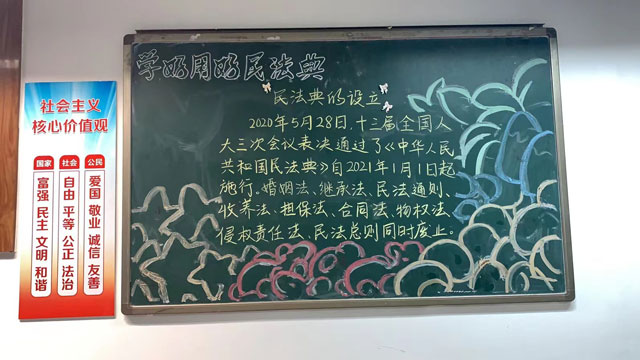 社会主义
核心价值观
国家
社会
公民
富强 民主 文明 和谐
自由 平等 公正 法治
爱国 敬业 诚信 友善
学好用好民法典
民法典的设立
2020年5月28日,十三届全国人
大三次会议表决通过了《中华人民
共和国民法典》自2021年1月1日起
施行、婚姻法、继承法、民法通则、
收养法、担保法、合同法、物权法、
侵权责任法、民法总则同时废止。